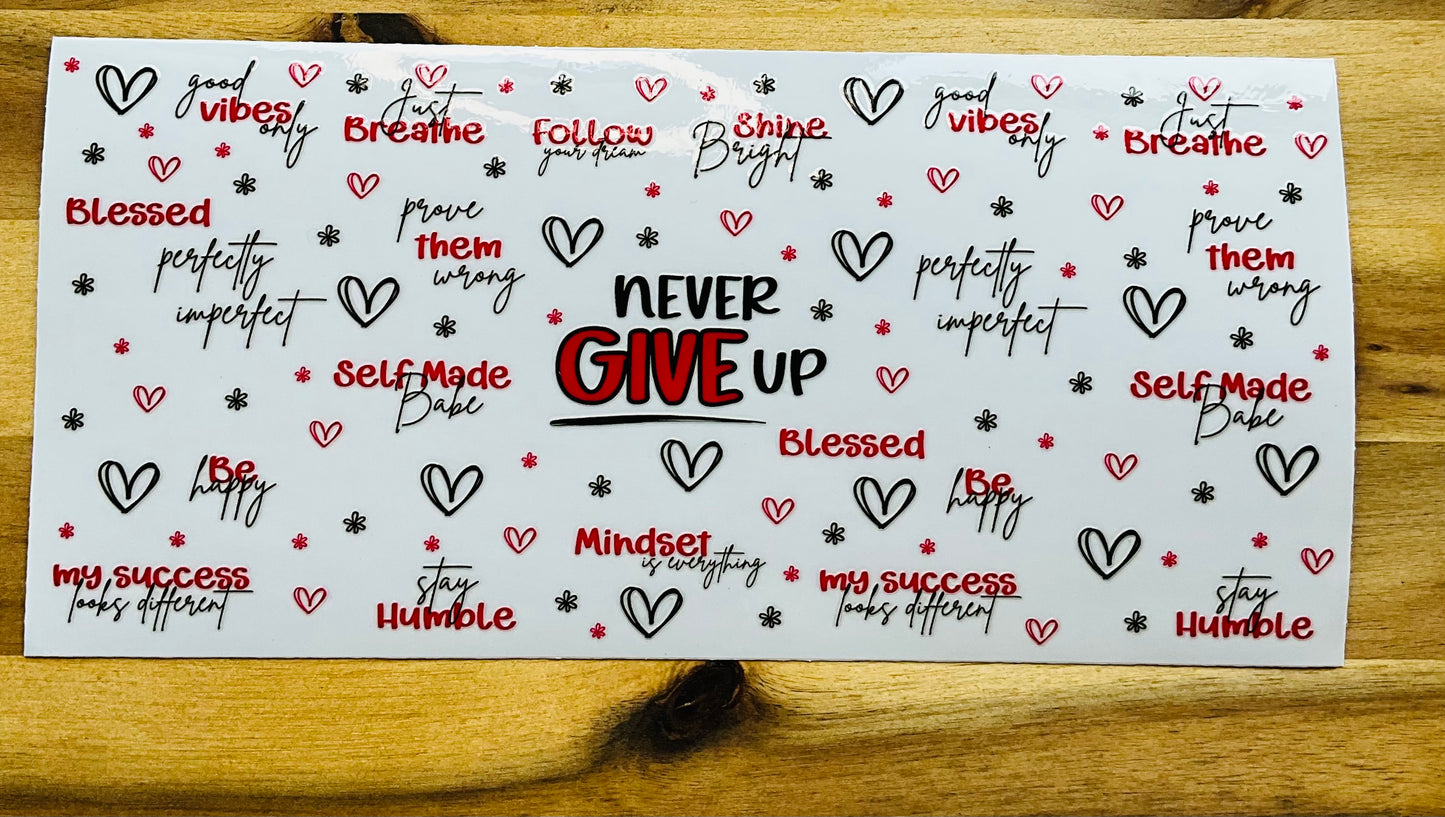 good
vibes
only
Just
Breathe
Follow
your dream
Shine
Bright
good
vibes
only
Just
Breathe
Blessed
perfectly
imperfect
prove
them
wrong
NEVER
GIVE UP
perfectly
imperfect
prove
them
wrong
Self Made
Babe
Blessed
Self Made
Babe
Be
happy
Be
happy
my success
looks different
stay
Humble
Mindset
is everything
my success
looks different
stay
Humble